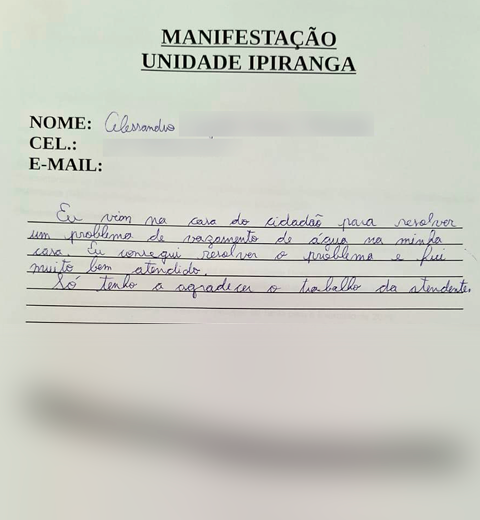 MANIFESTAÇÃO
UNIDADE IPIRANGA
NOME: Alessandro
CEL.:
E-MAIL:
Eu vim na casa do cidadão para resolver
um problema de vazamento de água na minha
casa. Eu consegui resolver o problema e fui
muito bem atendido.
Só tenho a agradecer o trabalho da atendente.